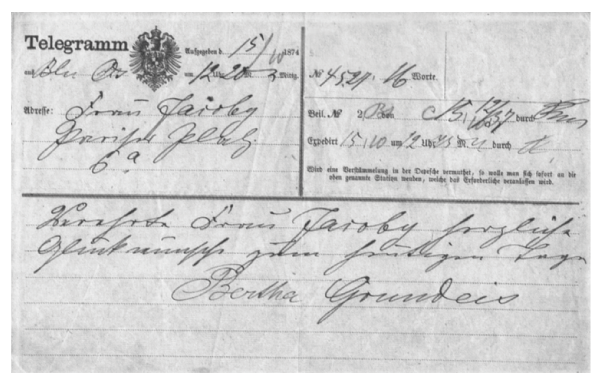 Telegramm
Aufgegeben d. 15/10 1874
aus Bln um 12 Uhr 20 M. Mittg.
Adresse: Frau Jacoby
Pariser Platz
6a
№ 4521 16 Worte.
Beil. № von 15/10 12/37 durch
Expedirt 15/10 um 12 Uhr 45 M. durch
Wird eine Verstümmelung in der Depesche vermuthet, so wolle man sich sofort an die
oben genannte Station wenden, welche das Erforderliche veranlassen wird.
Verehrte Frau Jacoby herzliche
Glückwünsche zum heutigen Tage
Bertha Grundeis